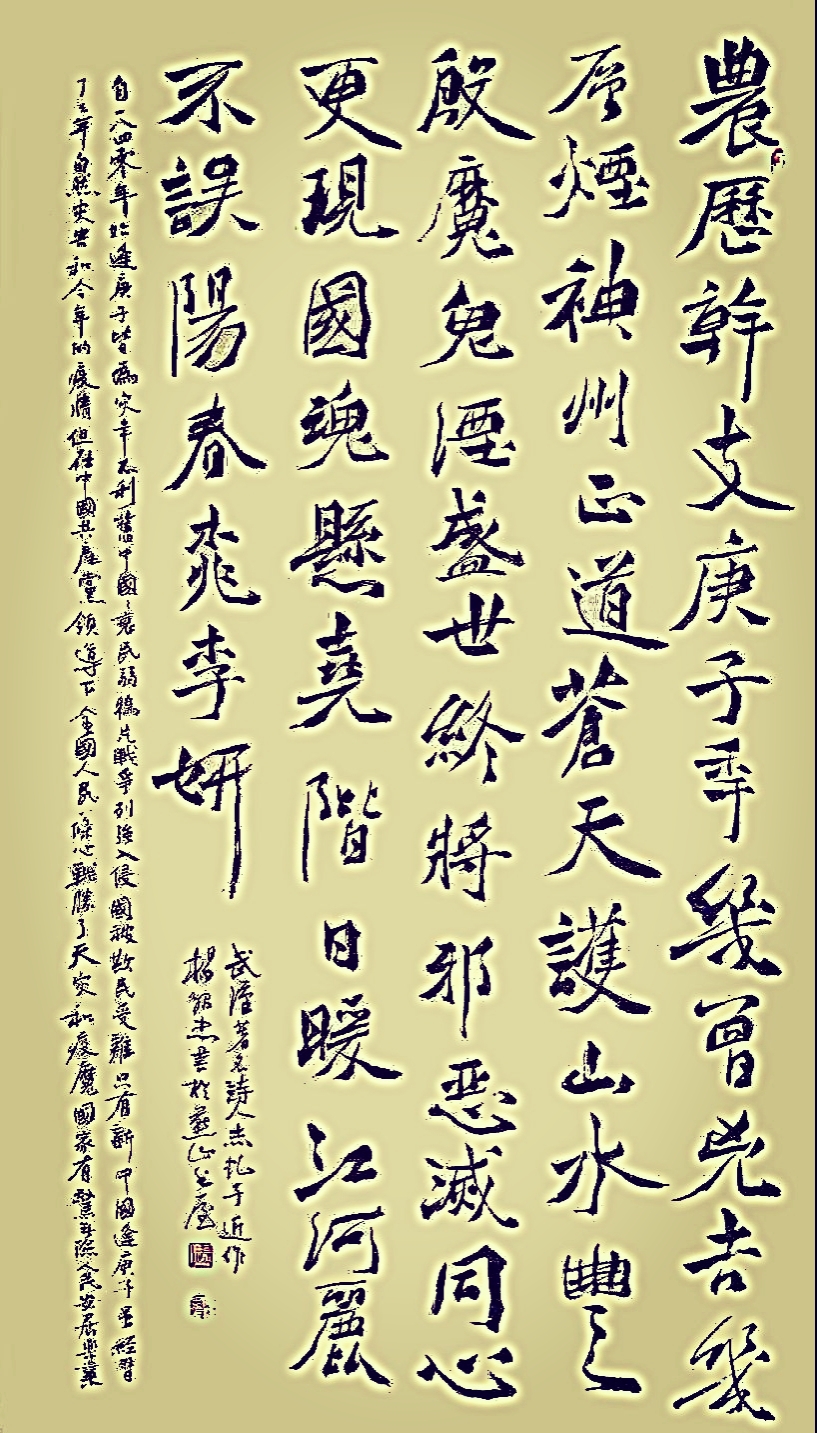 農曆幹支庚子年幾曾兇吉幾
層煙神州正道蒼天護山水豐
殷魔鬼湮盛世終將邪惡滅同心
更現國魂懸堯階日暖江河麗
不誤陽春桃李妍
武漢著名詩人 子近作
楊 杰書於燕山 屋
自一八四零年始逢庚子皆爲灾年不利舊中國國衰民弱鴉片戰爭列強入侵國被欺民受難只有新中國逢庚子虽經曆
了三年自然灾害和今年的疫情但在中國共產黨領導下全國人民一條心戰勝了天灾和疫魔國家有驚無險人民安居樂業